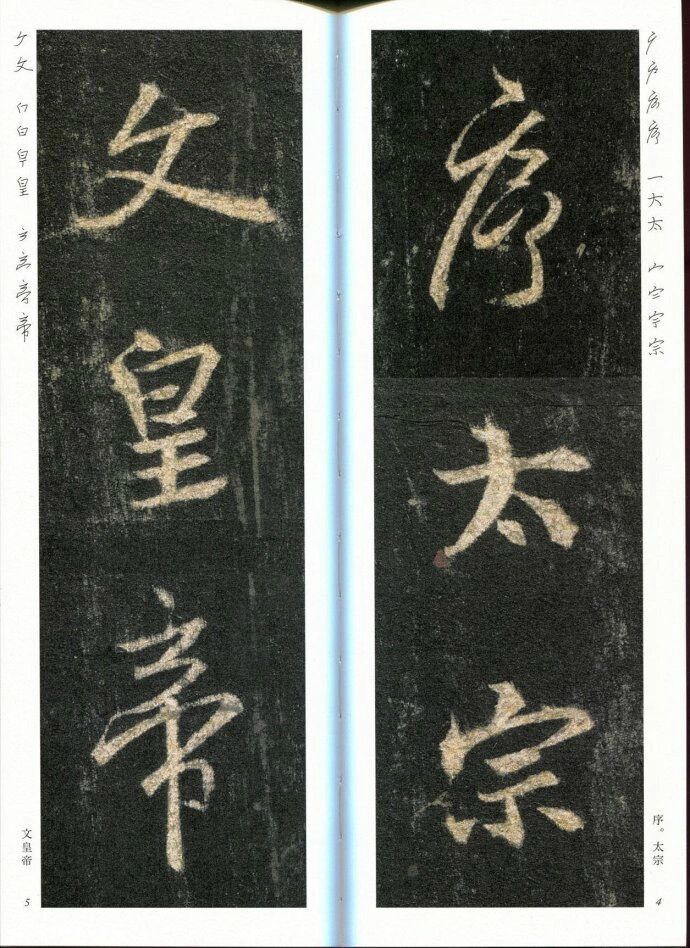 序太宗
序。太宗
4
文皇帝
文皇帝
5